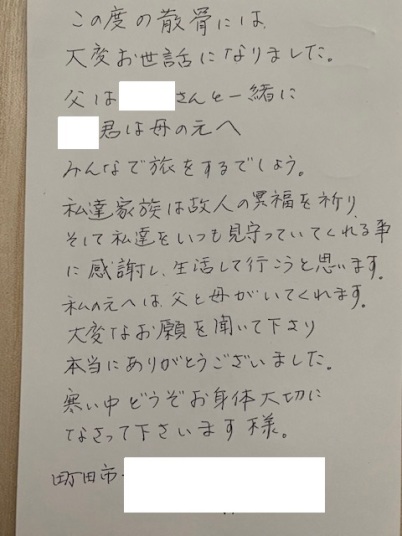 この度の散骨には、
大変お世話になりました。
父は さんと一緒に
君は母の元へ
みんなで旅をするでしょう。
私達家族は故人の冥福を祈り、
そして私達をいつも見守っていてくれる事
に感謝し、生活して行こうと思います。
私の元へは、父と母がいてくれます。
大変なお願を聞いて下さり
本当にありがとうございました。
寒い中どうぞお身体大切に
なさって下さいます様。
町田市